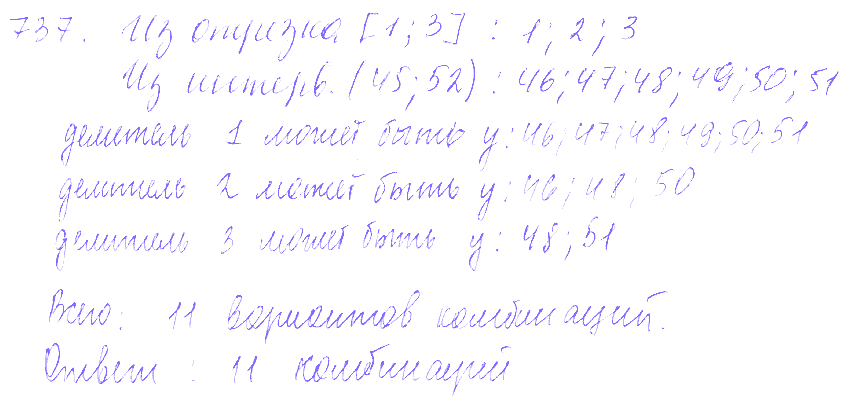 737. Из отрезка [1; 3] : 1; 2; 3
Из интерв. (45; 52) : 46; 47; 48; 49; 50; 51
делитель 1 может быть у: 46; 47; 48; 49; 50; 51
делитель 2 может быть у: 46; 48; 50
делитель 3 может быть у: 48; 51
Всего: 11 вариантов комбинаций.
Ответ : 11 комбинаций